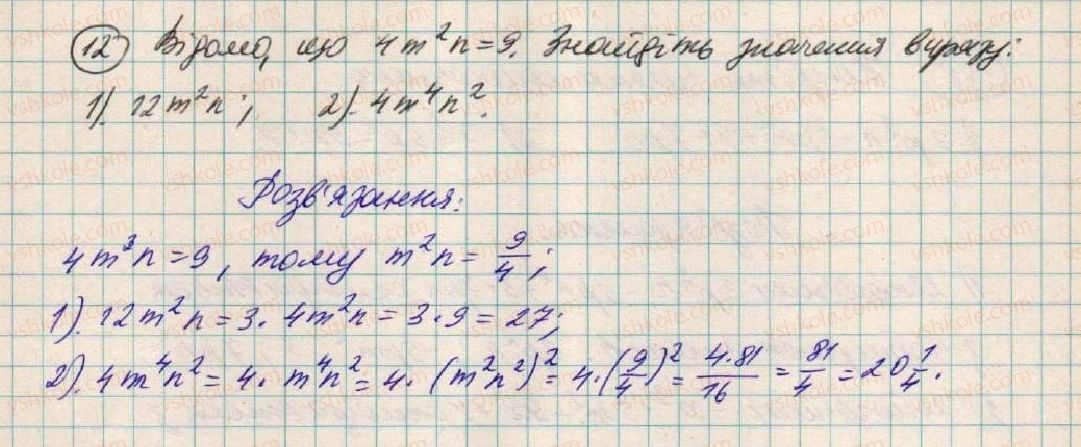 12 Відомо, що 4m²n=9. Знайдіть значення виразу:
1). 12m²n; 2). 4m⁴n².
Розв'язання:
4m³n=9, тому m²n = 9/4;
1). 12m²n = 3·4m²n = 3·9 = 27;
2). 4m⁴n² = 4·m⁴n² = 4·(m²n²)² = 4·(9/4)² = 4·81/16 = 81/4 = 20 1/4.